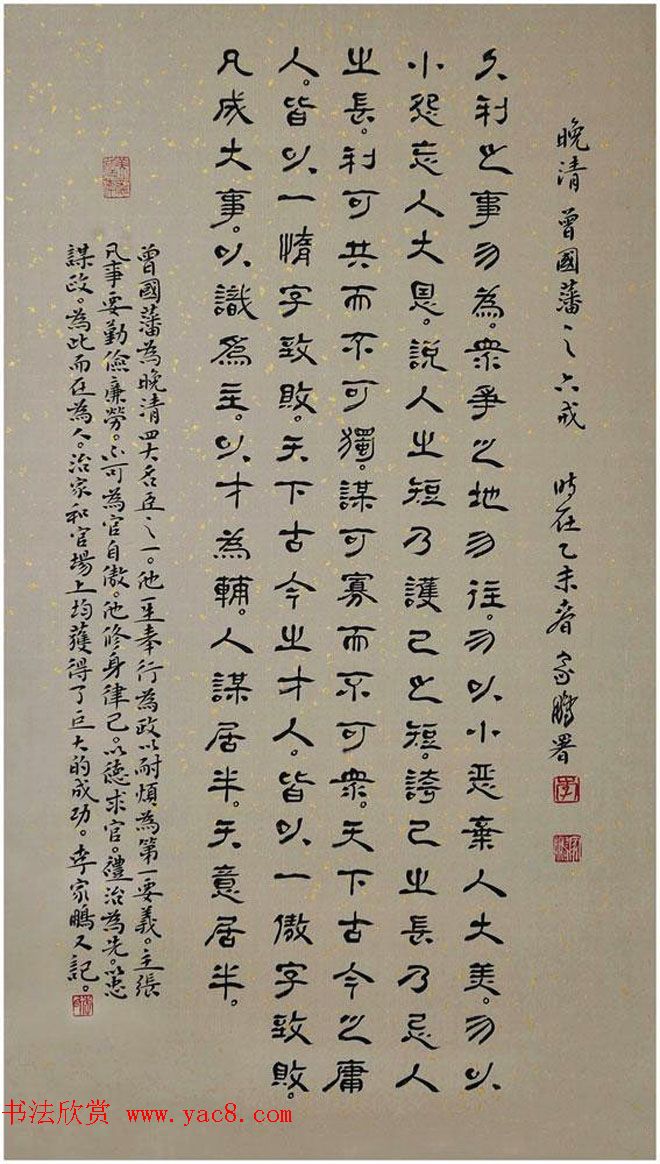 晚清 曾國藩之六戒 時在乙未春 家鵬署
久利之事勿為。衆爭之地勿往。勿以小惡棄人大美。勿以
小怨忘人大恩。說人之短乃護己之短。誇己之長乃忌人
之長。利可共而不可獨。謀可寡而不可衆。天下古今之庸
人。皆以一惰字致敗。天下古今之才人。皆以一傲字致敗。
凡成大事。以識為主。以才為輔。人謀居半。天意居半。
曾國藩為晚清四大名臣之一。他至奉行為政以耐煩為第一要義。主張
凡事要勤儉廉勞。不可為官自傲。他修身律己。以德求官。禮治為先。以忠
謀政。為此而在為人。治家和官場上均獲得了巨大的成功。李家鵬又記。
书法欣赏 www.yac8.com